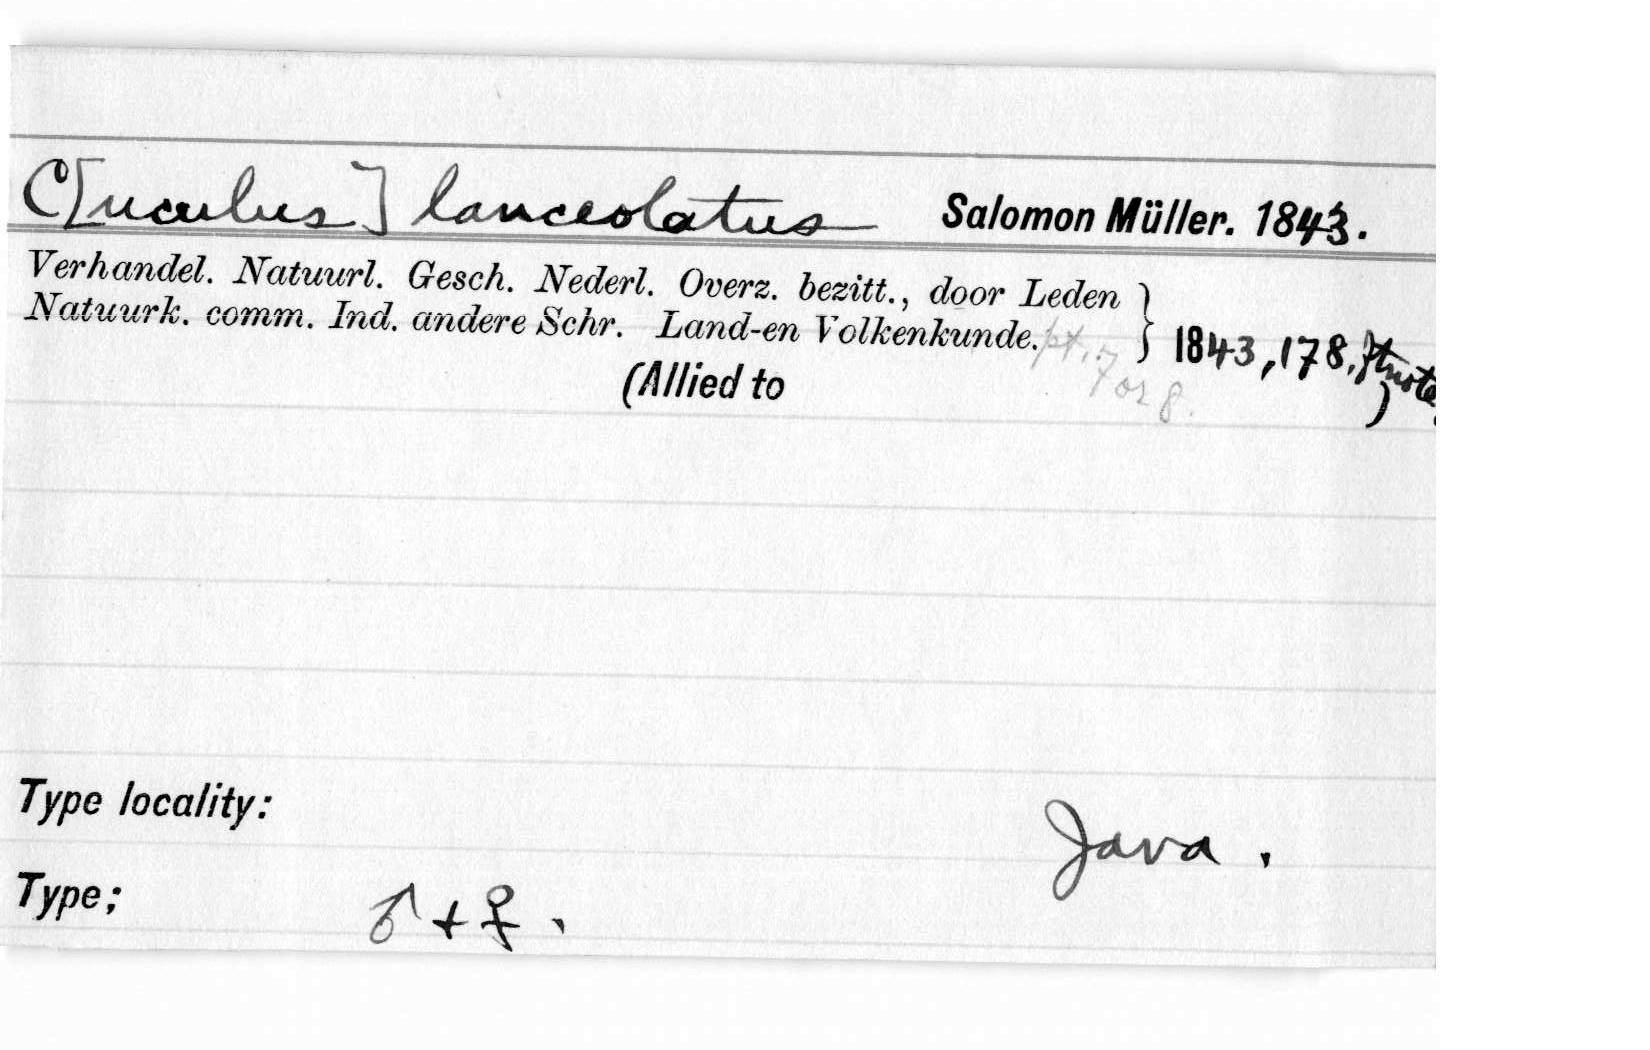 C[uculus] lanceolatus Salomon Müller. 1843.
Verhandel. Natuurl. Gesch. Nederl. Overz. bezitt., door Leden } 1843, 178, ftnote.
Natuurk. comm. Ind. andere Schr. Land-en Volkenkunde. pt. 7
or 8.
(Allied to )
Type locality: Java.
Type; ♂ + ♀.